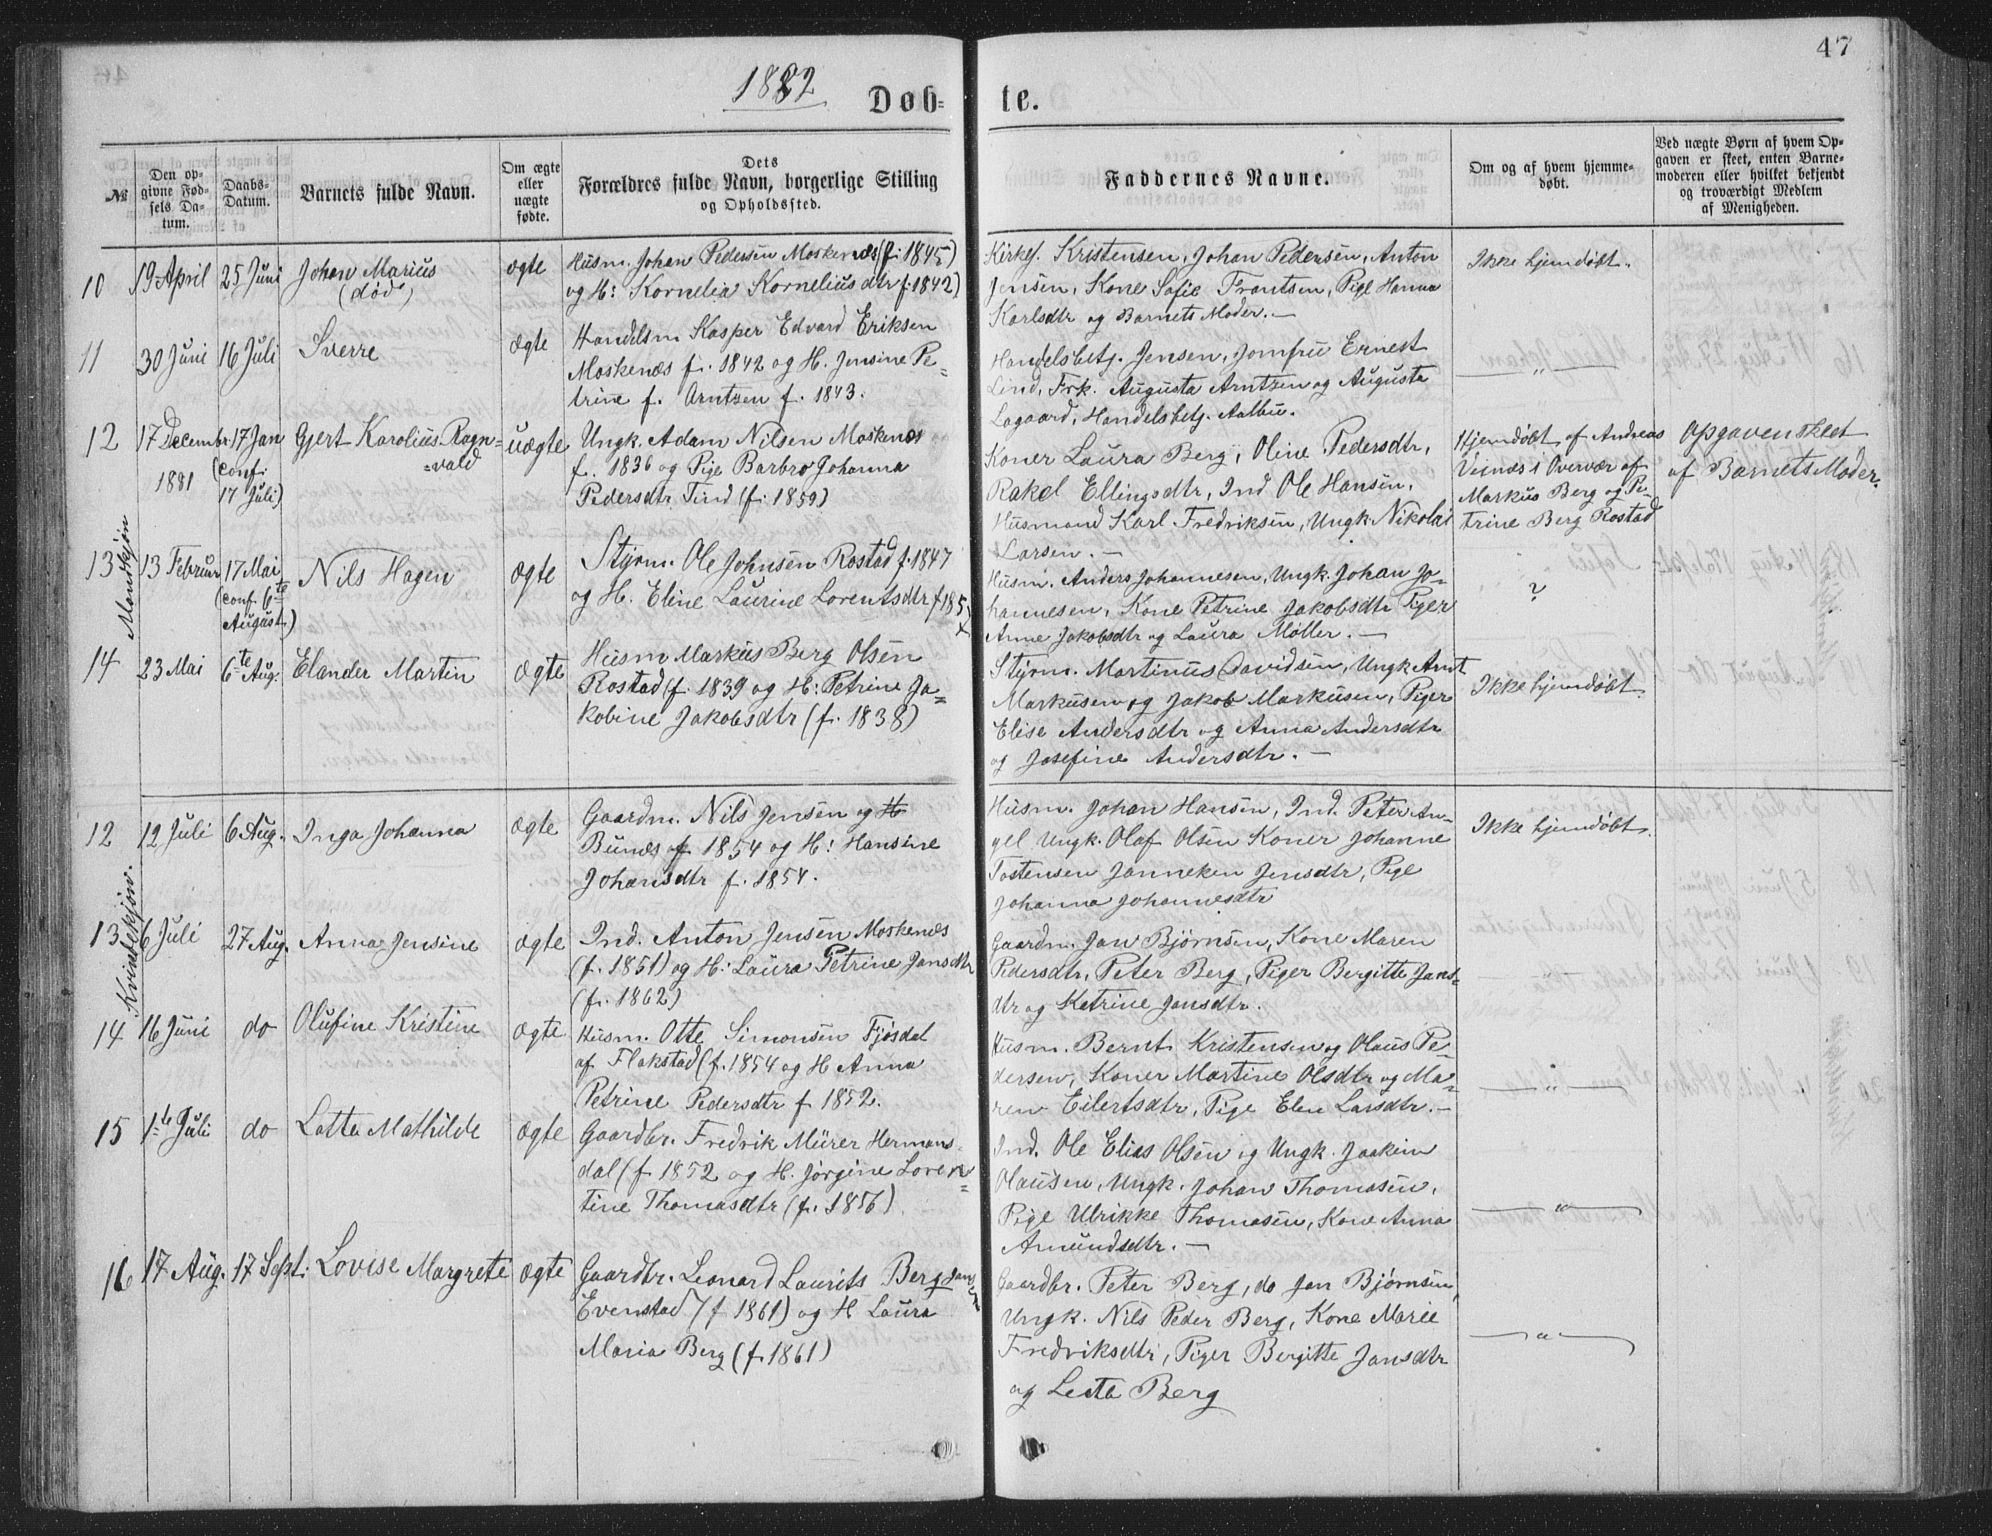 47
1882
Døb-
te.
№
Den op-
givne Fød-
sels Da-
tum.
Daabs-
Datum.
Barnets fulde Navn.
Om ægte
eller
uægte
fødte.
Dets
Forældres fulde Navn, borgerlige Stilling
og Opholdssted.
Faddernes Navne.
Om og af hvem hjemme-
døbt.
Ved uægte Børn af hvem Op-
gaven er skeet, enten Barne-
moderen eller hvilket bekjendt
og troværdigt Medlem
af Menigheden.
Mandkjøn
10
19 April
25 Juni
Johan Marius
(død)
ægte
Husm. Johan Pedersen Moskenæs (f. 1845)
og H: Kornelia Korneliusdtr f. 1842)
Kirkes. Kristensen, Johan Pedersen, Anton
Jensen, Kone Sofie Frantsen, Pige Hanna
Karlsdtr og Barnets Moder. —
Ikke hjemdøbt.
11
30 Juni
16 Juli
Sverre
ægte
Handelsm Kasper Edvard Eriksen
Moskenæs f. 1842 og H. Jensine Pe-
trine f. Arntzen f. 1843.
Handelsbetj. Jensen, Jomfru Ernest
Lind, Frk. Augusta Arntzen og Augusta
Lagaard, Handelsbetj. Aalbu.
— " —
12
17 Decembr
1881
17 Jan
(conf.
17 Juli)
Gjert Karolius Ragn-
vald
uægte
Ungk. Adam Nilsen Moskenæs
f. 1836 og Pige Barbro Johanna
Pedersdtr Tind (f. 1859)
Koner Laura Berg, Oline Pedersdtr,
Rakel Ellingsdtr, Ind Ole Hansen,
Husmand Karl Fredriksen, Ungk. Nikolai
Larsen. —
Hjemdøbt af Andreas
Veinæs i Overvær af
Markus Berg og Pe-
trine Berg Rostad
Opgaven skeet
af Barnets Moder.
13
13 Februar
17 Mai
(conf. 6te
August)
Nils Hagen
ægte
Styrm. Ole Johnsen Rostad f. 1847
og H. Eline Laurine Lorentsdtr f 185
Husm. Anders Johannesen, Ungk. Johan Jo-
hannesen, Kone Petrine Jakobsdtr Piger
Anne Jakobsdtr og Laura Møller. —
?
14
23 Mai
6te Aug.
Elander Martin
ægte
Husm Markus Berg Olsen
Rostad (f. 1839 og H: Petrine Ja-
kobine Jakobsdtr (f. 1838)
Styrm. Martinus Davidsen, Ungk Arnt
Markusen og Jakob Markusen, Piger
Elise Andersdtr og Anna Andersdtr
og Josefine Andersdtr. —
Ikke hjemdøbt.
Kvindekjøn.
12
12 Juli
6 Aug.
Inga Johanna
ægte
Gaardm. Nils Jensen og H
Bunes f 1854 og H: Hansine
Johansdtr f. 1854.
Husm. Johan Hansen, Ind. Peter An-
gel Ungk. Olaf Olsen Koner Johanne
Tostensen Janneken Jensdtr, Pige
Johanna Johannesdtr
Ikke hjemdøbt.
13
6 Juli
27 Aug.
Anna Jensine
ægte
Ind. Anton Jensen Moskenæs
(f. 1851) og H: Laura Petrine Jansdtr
(f. 1862)
Gaardm. Jan Bjørnsen, Kone Maren
Pedersdtr, Peter Berg, Piger Bergitte Jans-
dtr og Katrine Jansdtr.
14
16 Juni
do
Olufine Kristine
ægte
Husm. Otte Simonsen Fjøsdal
af Flakstad (f. 1854 og H Anna
Petrine Pedersdtr f 1852.
Husm. Bernt Kristensen og Olaus Pe-
dersen, Koner Martine Olsdtr og Ma-
ren Eilertsdtr, Pige Elen Larsdtr. —
— " —
15
1te Juli
do
Lotta Mathilde
ægte
Gaardbr. Fredrik Mürer Hermans-
dal (f. 1852 og H. Jørgine Loren-
tine Thomasdtr (f. 1856)
Ind. Ole Elias Olsen og Ungk. Joakim
Olausen, Ungk. Johan Thomasen,
Pige Ulrikke Thomasen, Kone Anna
Amundsdtr. —
— " —
16
17 Aug.
17 Sept.
Lovise Margrete
ægte
Gaardbr. Leonard Laurits Berg Jansen
Evenstad (f 1861) og H Laura
Maria Berg (f. 1861)
Gaardbr. Peter Berg, do Jan Bjørnsen,
Ungk. Nils Peder Berg, Kone Marie
Fredriksdtr, Piger Bergitte Jansdtr
og Leeta Berg
— " —